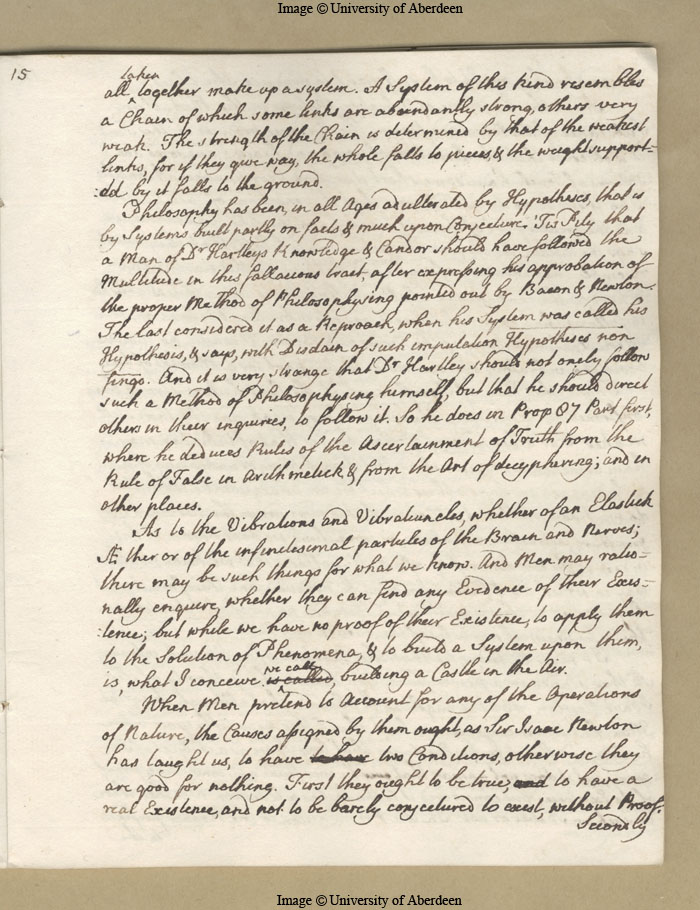 Image © University of Aberdeen
15
taken
all ^ together make up a system. A System of this kind resembles
a Chain of which some links are abundantly strong, others very
weak. The strength of the Chain is determined by that of the weakest
links, for if they give way, the whole falls to pieces, & the weight support=
:ed by it falls to the ground.
Philosophy has been, in all Ages adulterated by Hypotheses, that is
by Systems built partly on facts & much upon Conjecture. 'Tis Pity that
a Man of Dr Hartleys Knowledge & Candor should have followed the
Multitude in this fallacious tract, after expressing his approbation of
the proper Method of Philosophysing pointed out by Bacon & Newton.
The last considered it as a Reproach, when his System was called his
Hypothesis, & says, with Disdain of such imputation Hypotheses non
fingo. And it is very strange that Dr Hartley should not onely follow
such a Method of Philosophysing himself, but that he should direct
others in their inquiries, to follow it. So he does in Prop 87 Part first,
where he deduces Rules of the Ascertainment of Truth from the
Rule of False in Arithmetick & from the Art of decyphering; and in
other places.
As to the Vibrations and Vibratiuncles, whether of an Elastick
Æther or of the infinitesimal particles of the Brain and Nerves;
there may be such things for what we know. And Men may ratio=
nally enquire, whether they can find any Evidence of their Exis=
:tence; but while we have no proof of their Existence, to apply them
to the Solution of Phenomena, & to build a System upon them,
we call
is, what I conceive is called ^, building a Castle in the Air.
When Men pretend to Account for any of the Operations
of Nature, the Causes assigned by them ought, as Sir Isaac Newton
has taught us, to have to have two Conditions, otherwise they
are good for nothing. First they ought to be true, and to have a
real Existence, and not to be barely conjectured to exist, without Proof.
Secondly
Image © University of Aberdeen